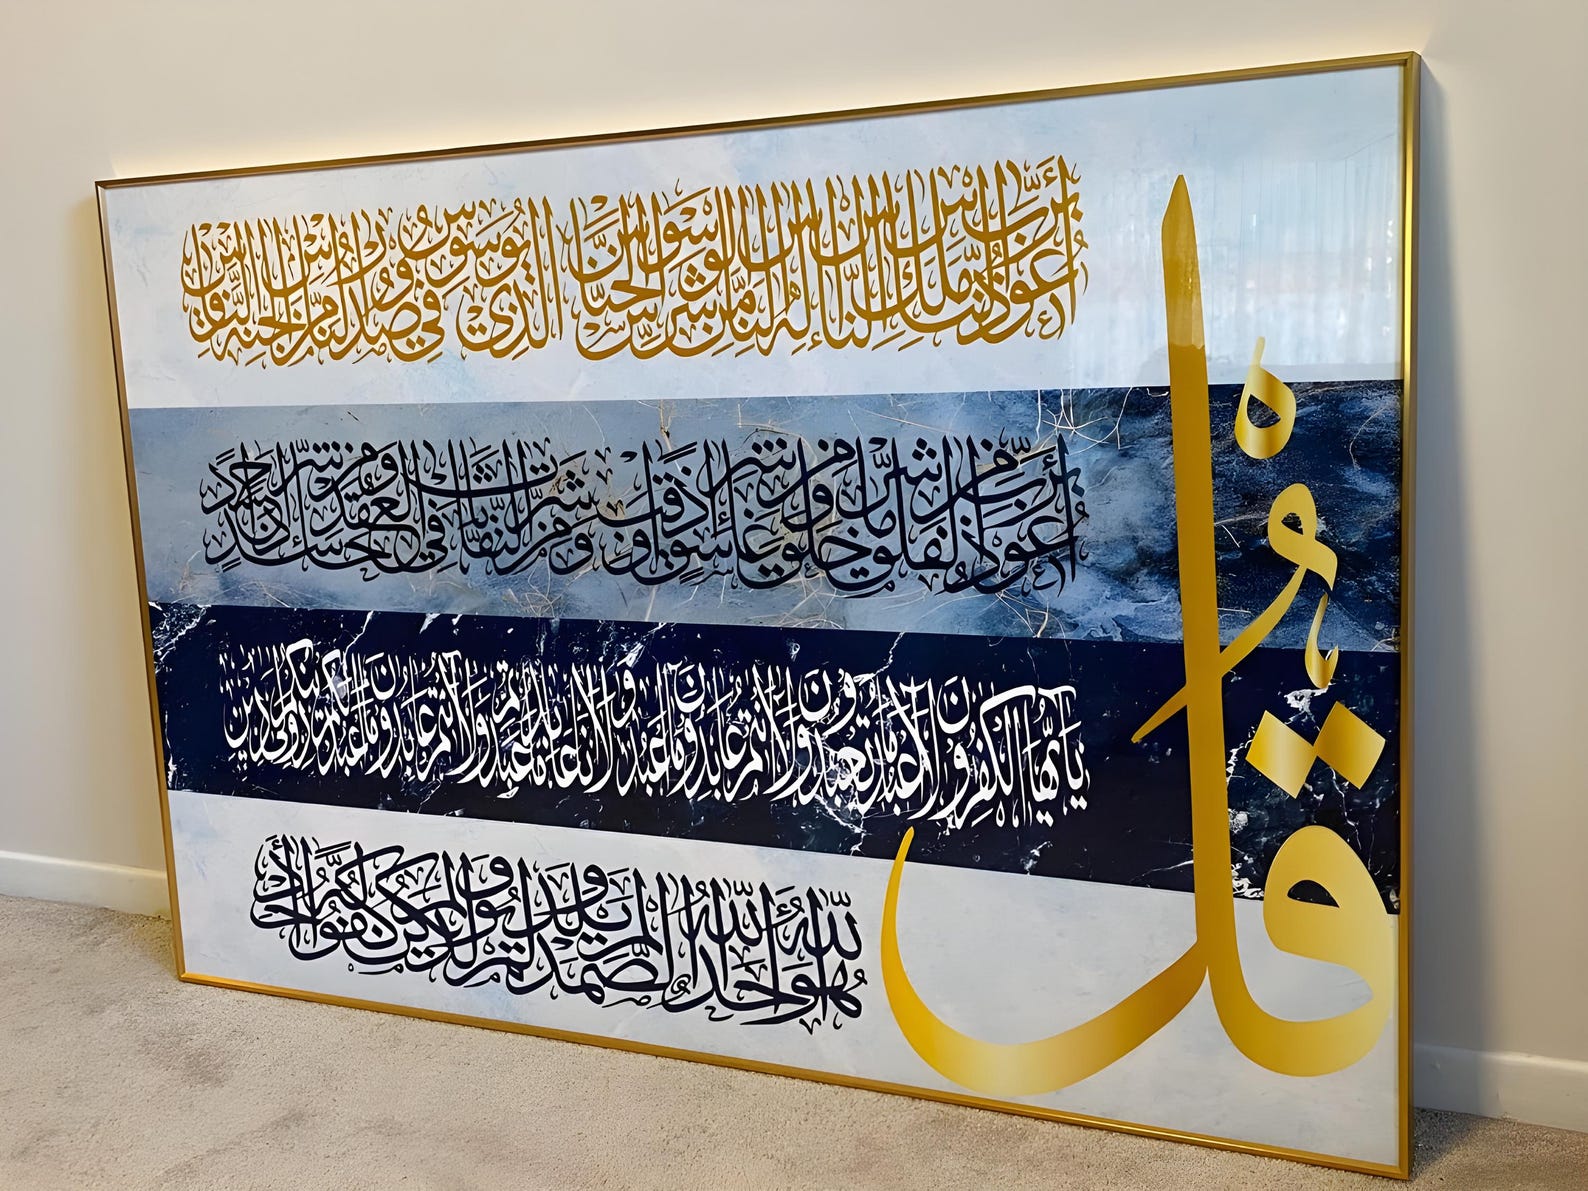 قل
أعوذ برب الناس ملك الناس إله الناس من شر الوسواس الخناس الذي يوسوس في صدور الناس من الجنة والناس
أعوذ برب الفلق من شر ما خلق ومن شر غاسق إذا وقب ومن شر النفاثات في العقد ومن شر حاسد إذا حسد
يا أيها الكافرون لا أعبد ما تعبدون ولا أنتم عابدون ما أعبد ولا أنا عابد ما عبدتم ولا أنتم عابدون ما أعبد لكم دينكم ولي دين
هو الله أحد الله الصمد لم يلد ولم يولد ولم يكن له كفوا أحد